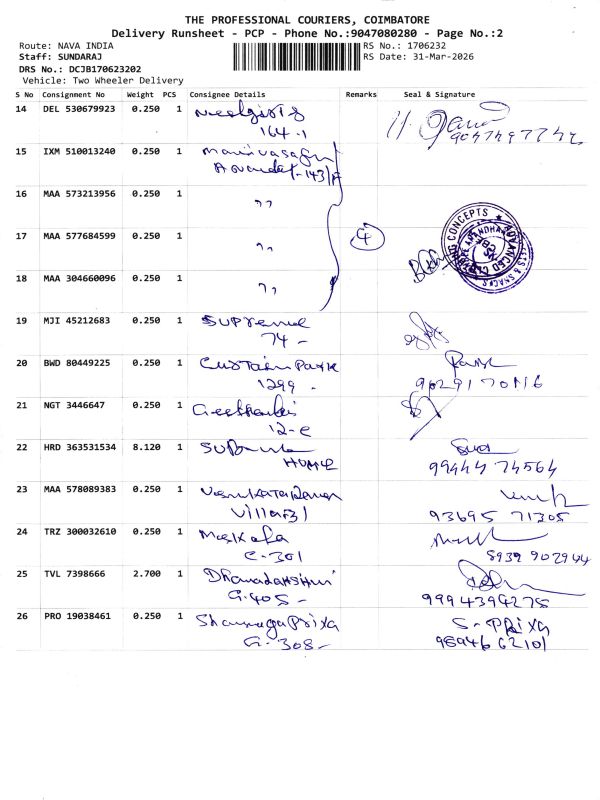 THE PROFESSIONAL COURIERS, COIMBATORE
Delivery Runsheet - PCP - Phone No.:9047080280 - Page No.:2
Route: NAVA INDIA
RS No.: 1706232
Staff: SUNDARAJ
RS Date: 31-Mar-2026
DRS No.: DCJB170623202
Vehicle: Two Wheeler Delivery
S No Consignment No Weight PCS Consignee Details Remarks Seal & Signature
14 DEL 530679923 0.250 1
164-1
15 IXM 510013240 0.250 1 Manivasagan
143/A
16 MAA 573213956 0.250 1 ,,
17 MAA 577684599 0.250 1 ,, 4
ADVANCED CONCEPTS
18 MAA 304660096 0.250 1 ,,
19 MJI 45212683 0.250 1 Supreme
74 -
20 BWD 80449225 0.250 1 Custain Park
1299 - 9629170116
21 NGT 3446647 0.250 1
12-C
22 HRD 363531534 8.120 1
Home 99444 74564
23 MAA 578089383 0.250 1 Venkataraman
Villa F31 93695 71305
24 TRZ 300032610 0.250 1
C-301 8939 902944
25 TVL 7398666 2.700 1
G-405 - 9994394278
26 PRO 19038461 0.250 1 Shanmuga Priya S-Priya
G-308- 9894662101